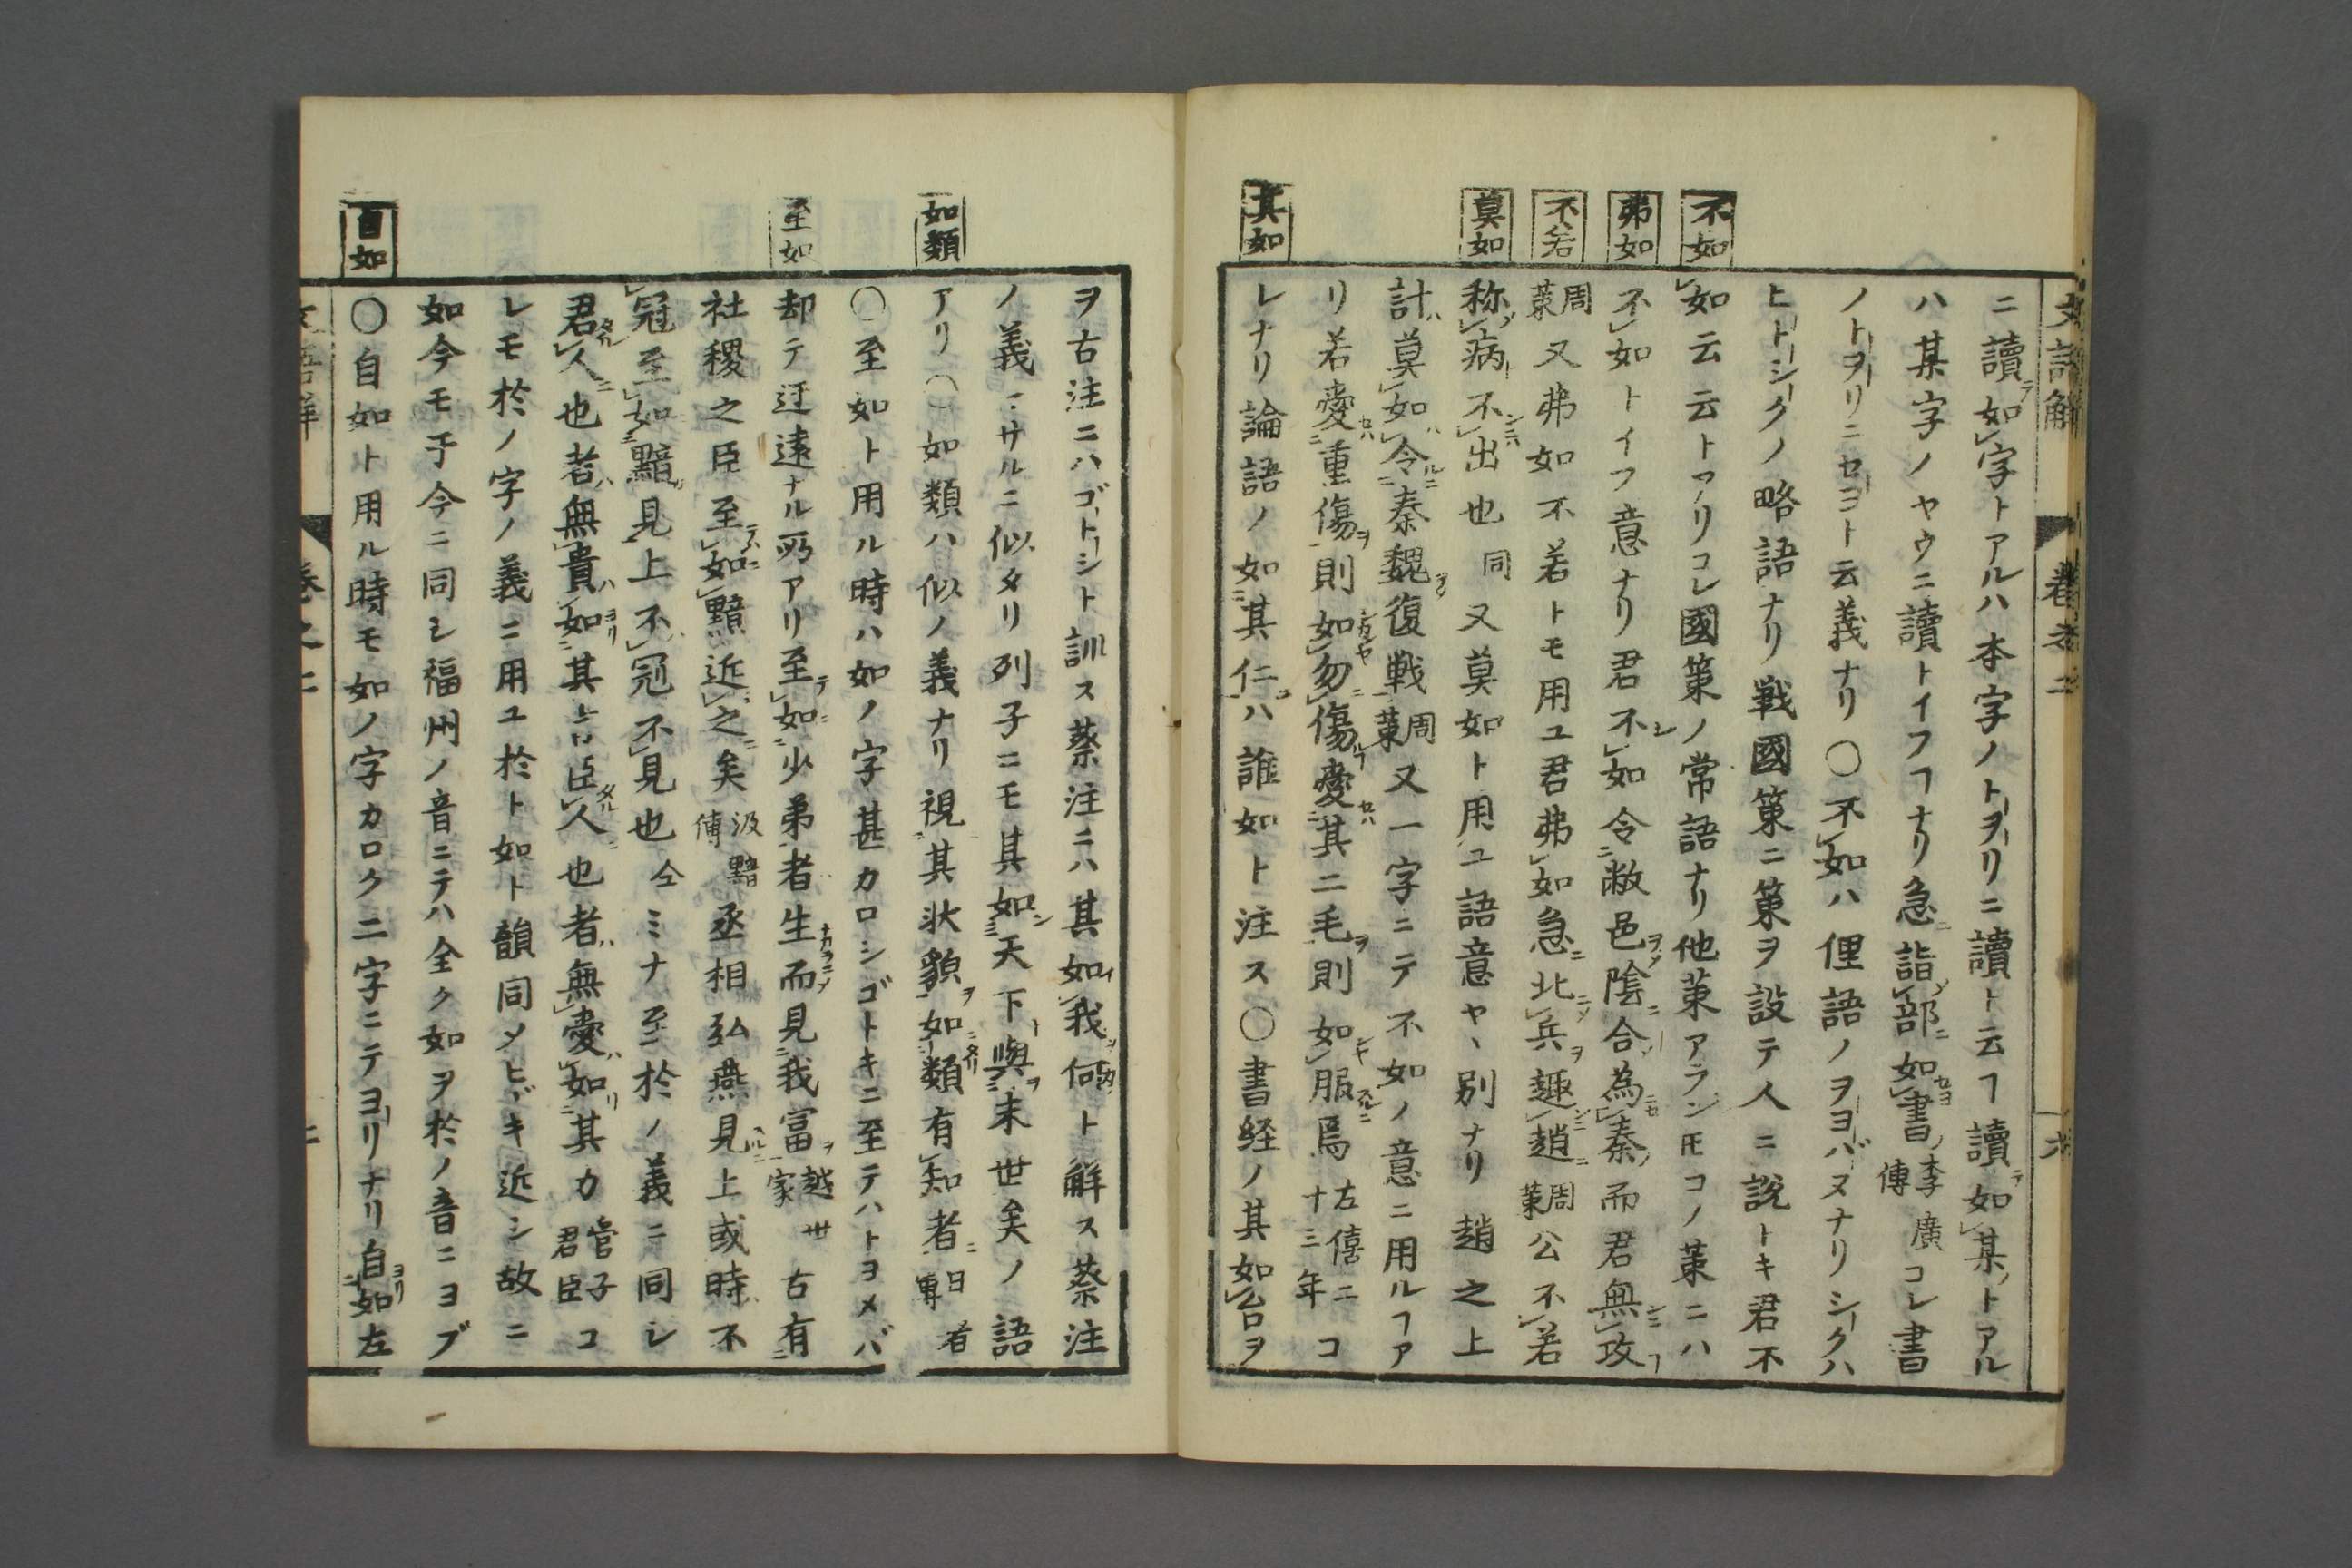 不如
弗如
不若
莫如
其如
文語解
卷之二
ニ讀如字トアルハ本字ノトヲリニ讀ト云ヿ讀如某トアル
ハ某字ノヤウニ讀トイフヿナリ急詣部如書李廣傳コレ書
ノトヲリニセヨト云義ナリ〇不如ハ俚語ノヲヨバヌナリシークハ
ヒトシークノ略語ナリ戰國策ニ策ヲ設テ人ニ說トキ君不
如云云トアリコレ國策ノ常語ナリ他策アランモコノ策ニハ
不如トイフ意ナリ君不如令敝邑陰合為秦而君無攻
周策又弗如不若トモ用ユ君弗如急北兵趨趙周策公不若
称病不出也同又莫如ト用ユ語意ヤヽ別ナリ趙之上
計莫如令秦魏復戰周策又一字ニテ不如ノ意ニ用ルヿア
リ若愛重傷則如勿傷愛其二毛則如服焉左僖二十三年コ
レナリ論語ノ如其仁ハ誰如ト注ス〇書経ノ其如台ヲ
如類
至如
自如
ヲ古注ニハゴトシト訓ス蔡注ニハ其如我何ト解ス蔡注
ノ義マサルニ似タリ列子ニモ其如天下與末世矣ノ語
アリ〇如類ハ似ノ義ナリ視其狀貌如類有知者日者傳
〇至如ト用ル時ハ如ノ字甚カロシゴトキニ至テハトヨメバ
却テ迂遠ナル所アリ至如少弟者生而見我富越世家古有
社稷之臣至如黯近之矣汲黯傳丞相弘燕見上或時不
冠至如黯見上不冠不見也仝ミナ至於ノ義ニ同シ
君人也者無貴如其言臣人也者無愛如其力管子君臣コ
レモ於ノ字ノ義ニ用ユ於ト如ト韻同メヒヾキ近シ故ニ
如今モ于今ニ同シ福州ノ音ニテハ全ク如ヲ於ノ音ニヨブ
〇自如ト用ル時モ如ノ字カロク二字ニテヨリナリ自如左